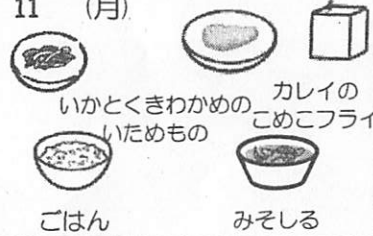 11 (月)
いかとくきわかめの
いためもの
カレイの
こめこフライ
ごはん
みそしる